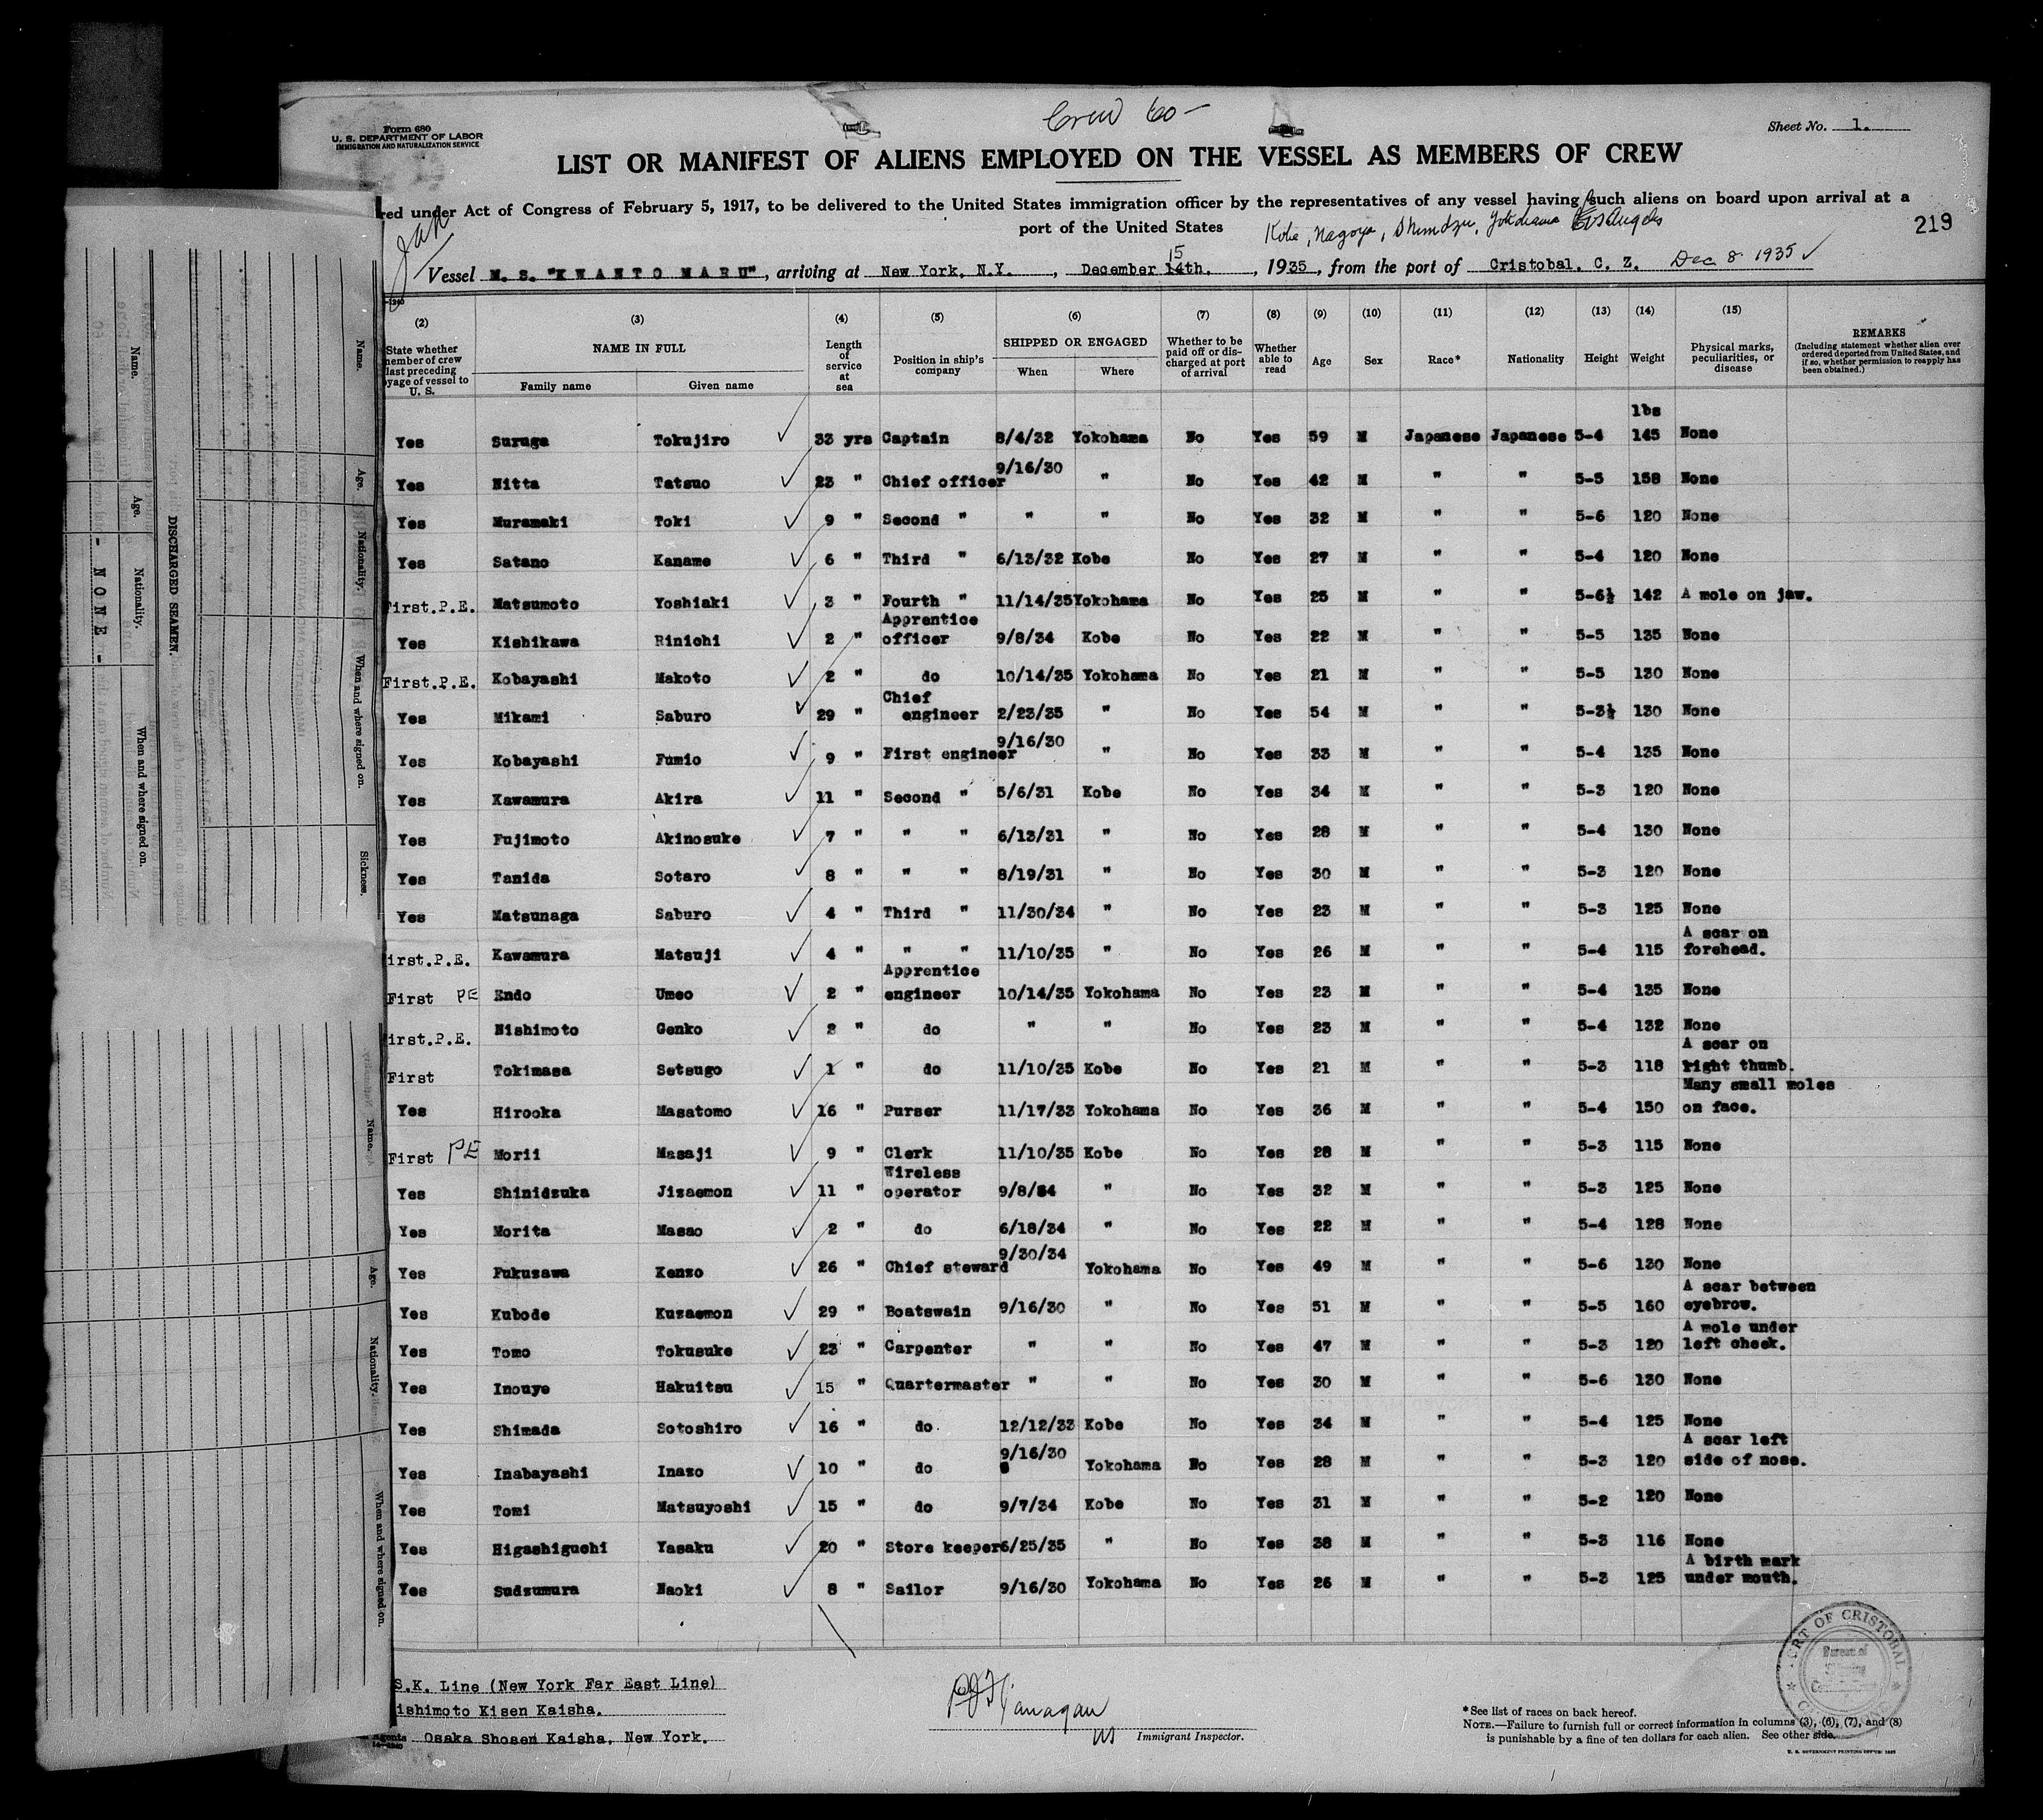 Crew 60 -
Form 680
U. S. DEPARTMENT OF LABOR
IMMIGRATION AND NATURALIZATION SERVICE
Sheet No. 1.
LIST OR MANIFEST OF ALIENS EMPLOYED ON THE VESSEL AS MEMBERS OF CREW
red under Act of Congress of February 5, 1917, to be delivered to the United States immigration officer by the representatives of any vessel having such aliens on board upon arrival at a
port of the United States Kobe, Nagoya, Shimdzu, Yokohama Los Angeles
219
Vessel M. S. "KWANTO MARU", arriving at New York, N.Y., December 14th. 15, 1935, from the port of Cristobal. C. Z. Dec 8 1935 ✓
(2) (3) (4) (5) (6) (7) (8) (9) (10) (11) (12) (13) (14) (15)
State whether member of crew last preceding voyage of vessel to U. S. NAME IN FULL Family name Given name Length of service at sea Position in ship's company SHIPPED OR ENGAGED When Where Whether to be paid off or discharged at port of arrival Whether able to read Age Sex Race* Nationality Height Weight Physical marks, peculiarities, or disease REMARKS (Including statement whether alien ever ordered deported from United States, and if so, whether permission to reapply has been obtained.)
lbs
Yes Suruga Tokujiro ✓ 33 yrs Captain 8/4/32 Yokohama No Yes 59 M Japanese Japanese 5-4 145 None
Yes Nitta Tatsuo ✓ 23 " Chief officer 9/16/30 " No Yes 42 M " " 5-5 158 None
Yes Muramaki Toki ✓ 9 " Second " " " No Yes 32 M " " 5-6 120 None
Yes Satano Kaname ✓ 6 " Third " 6/13/32 Kobe No Yes 27 M " " 5-4 120 None
First.P.E. Matsumoto Yoshiaki ✓ 3 " Fourth " 11/14/35 Yokohama No Yes 25 M " " 5-6½ 142 A mole on jaw.
Yes Kishikawa Rinichi ✓ 2 " Apprentice officer 9/8/34 Kobe No Yes 22 M " " 5-5 135 None
First.P.E. Kobayashi Makoto ✓ 2 " do 10/14/35 Yokohama No Yes 21 M " " 5-5 130 None
Yes Mikami Saburo ✓ 29 " Chief engineer 2/23/35 " No Yes 54 M " " 5-3½ 130 None
Yes Kobayashi Fumio ✓ 9 " First engineer 9/16/30 " No Yes 33 M " " 5-4 135 None
Yes Kawamura Akira ✓ 11 " Second " 5/6/31 Kobe No Yes 34 M " " 5-3 120 None
Yes Fujimoto Akinosuke ✓ 7 " " " 6/13/31 " No Yes 28 M " " 5-4 130 None
Yes Tanida Sotaro ✓ 8 " " " 8/19/31 " No Yes 30 M " " 5-3 120 None
Yes Matsunaga Saburo ✓ 4 " Third " 11/30/34 " No Yes 23 M " " 5-3 125 None
irst.P.E. Kawamura Matsuji ✓ 4 " " " 11/10/35 " No Yes 26 M " " 5-4 115 A scar on forehead.
First PE Endo Umeo ✓ 2 " Apprentice engineer 10/14/35 Yokohama No Yes 23 M " " 5-4 135 None
irst.P.E. Nishimoto Genko ✓ 2 " do " " No Yes 23 M " " 5-4 132 None
First Tokimasa Setsugo ✓ 1 " do 11/10/35 Kobe No Yes 21 M " " 5-3 118 A scar on right thumb.
Yes Hirooka Masatomo ✓ 16 " Purser 11/17/33 Yokohama No Yes 36 M " " 5-4 150 Many small moles on face.
First PE Morii Masaji ✓ 9 " Clerk 11/10/35 Kobe No Yes 28 M " " 5-3 115 None
Yes Shinidzuka Jizaemon ✓ 11 " Wireless operator 9/8/34 " No Yes 32 M " " 5-3 125 None
Yes Morita Masao ✓ 2 " do 6/18/34 " No Yes 22 M " " 5-4 128 None
Yes Fukuzawa Kenzo ✓ 26 " Chief steward 9/30/34 Yokohama No Yes 49 M " " 5-6 130 None
Yes Kubode Kuzaemon ✓ 29 " Boatswain 9/16/30 " No Yes 51 M " " 5-5 160 A scar between eyebrow.
Yes Tomo Tokusuke ✓ 23 " Carpenter " " No Yes 47 M " " 5-3 120 A mole under left cheek.
Yes Inouye Hakuitsu ✓ 15 " Quartermaster " " No Yes 30 M " " 5-6 130 None
Yes Shimada Sotoshiro ✓ 16 " do. 12/12/33 Kobe No Yes 34 M " " 5-4 125 None
Yes Inabayashi Inazo ✓ 10 " do 9/16/30 Yokohama No Yes 28 M " " 5-3 120 A scar left side of nose.
Yes Tomi Matsuyoshi ✓ 15 " do 9/7/34 Kobe No Yes 31 M " " 5-2 120 None
Yes Higashiguchi Yasaku ✓ 20 " Store keeper 6/25/35 " No Yes 38 M " " 5-3 116 None
Yes Sudzumura Naoki ✓ 8 " Sailor 9/16/30 Yokohama No Yes 26 M " " 5-3 125 A birth mark under mouth.
S.K. Line (New York Far East Line)
ishimoto Kisen Kaisha.
Agents Osaka Shosen Kaisha, New York.
Immigrant Inspector.
PORT OF CRISTOBAL
Bureau of Shipping
*See list of races on back hereof.
NOTE.—Failure to furnish full or correct information in columns (3), (6), (7), and (8)
is punishable by a fine of ten dollars for each alien. See other side.
U. S. GOVERNMENT PRINTING OFFICE
Name. Age. Nationality. When and where signed on. Sickness.
DISCHARGED SEAMEN.
Name. Age. Nationality. When and where signed on.
- NONE -
Name. Age. Nationality. When and where signed on.